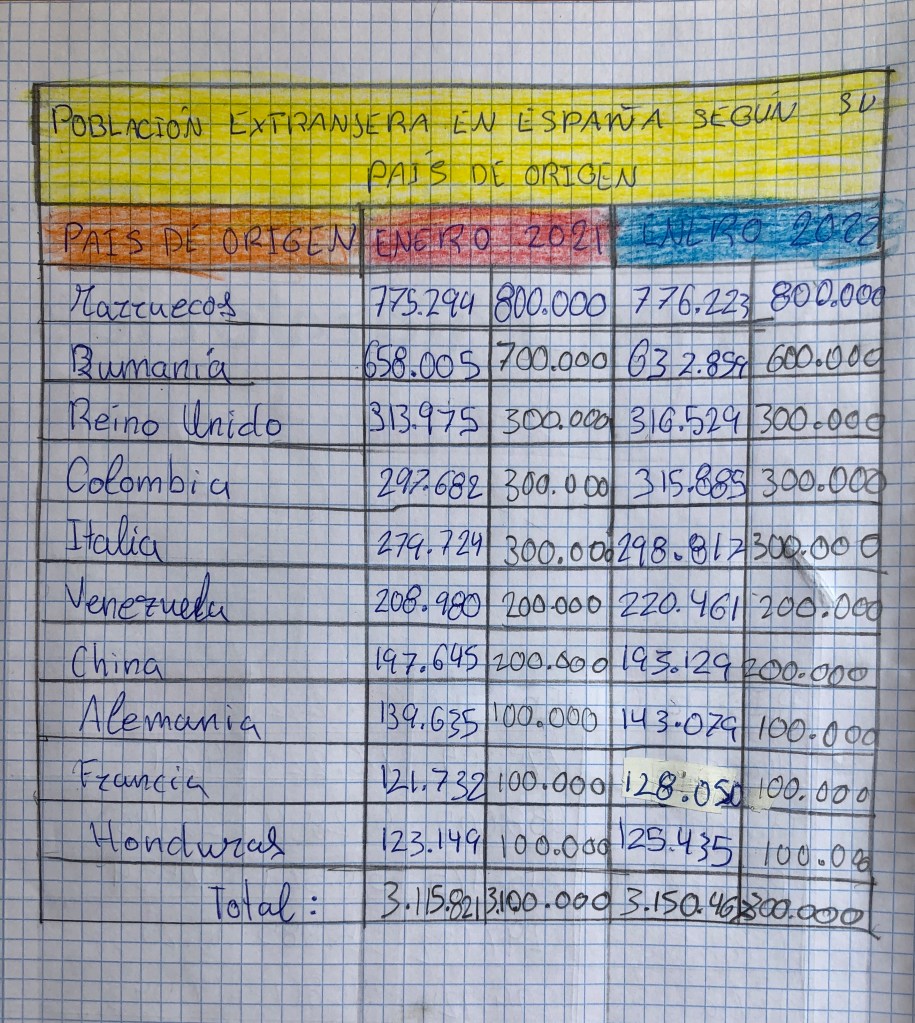 POBLACIÓN EXTRANJERA EN ESPAÑA SEGÚN SU
PAÍS DE ORIGEN
PAIS DE ORIGEN ENERO 2021 ENERO 2022
Marruecos 775.294 800.000 776.223 800.000
Rumanía 658.005 700.000 632.859 600.000
Reino Unido 313.975 300.000 316.529 300.000
Colombia 297.682 300.000 315.885 300.000
Italia 279.724 300.000 298.812 300.000
Venezuela 208.980 200.000 220.461 200.000
China 197.645 200.000 193.129 200.000
Alemania 139.635 100.000 143.079 100.000
Francia 121.732 100.000 128.050 100.000
Honduras 123.149 100.000 125.435 100.00
Total: 3.115.821 3.100.000